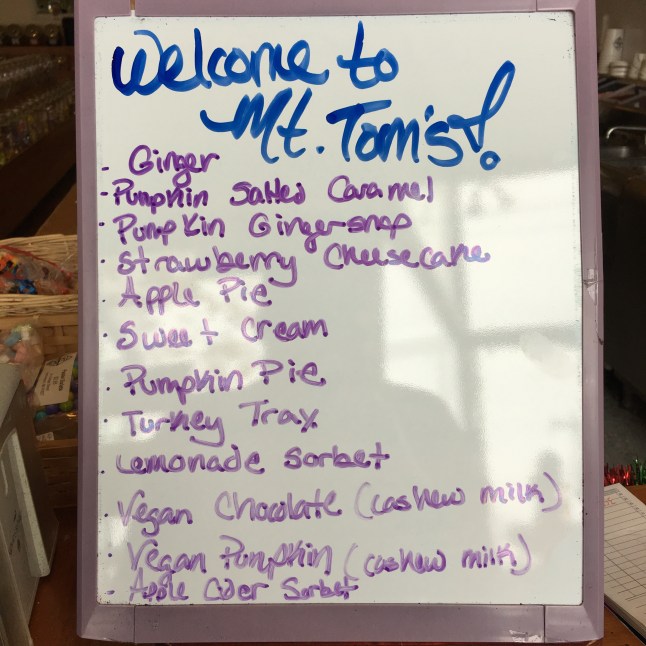 Welcome to
Mt. Tom's!
- Ginger
- Pumpkin Salted Caramel
· Pumpkin Gingersnap
· Strawberry Cheesecake
· Apple Pie
· Sweet Cream
· Pumpkin Pie
· Turkey Trax
· Lemonade Sorbet
· Vegan Chocolate (cashew milk)
· Vegan Pumpkin (cashew milk)
- Apple Cider Sorbet